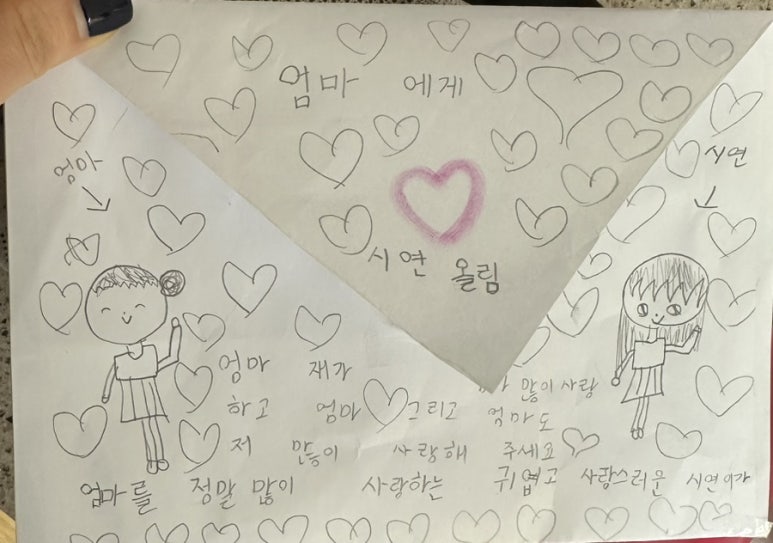 엄마 에게
엄마
시연
시연 올림
엄마 재가 많이 사랑
하고 엄마 그리고 엄마도
저 많이 사랑해 주세요
엄마를 정말 많이 사랑하는 귀엽고 사랑스러운 시연이가